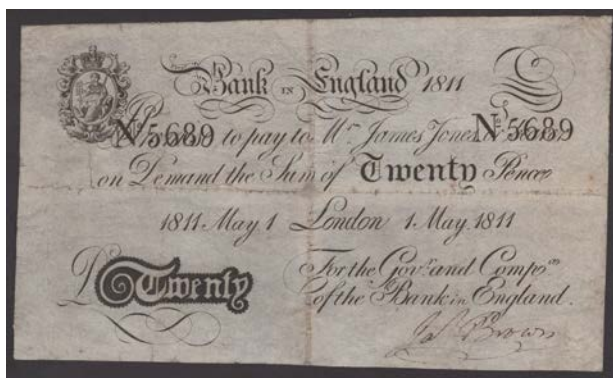 Bank IN England 1811
No 5689 to pay to Mr. James Jones No 5689
on Demand the Sum of Twenty Pence
1811 May 1 London 1 May 1811
For the Govr. and Compa.
Twenty of the Bank in England.
Jas. Brown